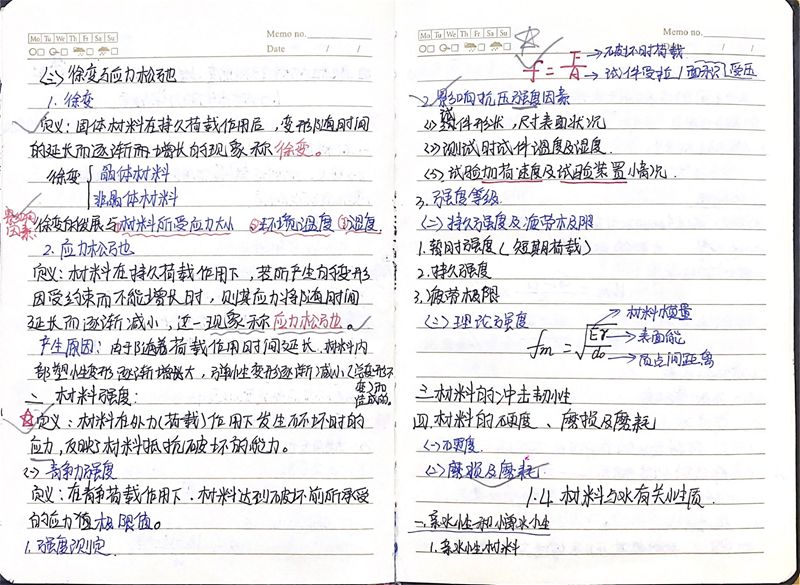 Mo Tu We Th Fr Sa Su
Memo no.
Date / /
(三) 徐变与应力松弛
1. 徐变
定义: 固体材料在持久荷载作用后, 变形随时间
的延长而逐渐而增长的现象称徐变。
徐变 { 晶体材料
非晶体材料
影响因素: 徐变的发展与材料所受应力大小 环境温度 湿度
2. 应力松弛
定义: 材料在持久荷载作用下, 若所产生的变形
因受约束而不能增长时, 则其应力将随时间
延长而逐渐减小, 这一现象称应力松弛。
产生原因: 由于随着荷载作用时间延长, 材料内
部塑性变形逐渐增大, 弹性变形逐渐减小 (总变形不变) 而
造成的。
二、材料强度:
定义: 材料在外力(荷载)作用下发生破坏时的
应力, 反映了材料抵抗破坏的能力。
(一) 静力强度
定义: 在静荷载作用下, 材料达到破坏前所承受
的应力值极限值。
1. 强度测定
Mo Tu We Th Fr Sa Su
Memo no.
Date / /
f = F/A → 破坏时荷载
→ 试件受拉/面积/受压
2. 影响抗压强度因素
试件形状, 尺寸表面状况
(2) 测试时试件温度及湿度.
(5) 试验加荷速度及试验装置情况.
3. 强度等级
(二) 持久强度及疲劳极限
1. 暂时强度 (短期荷载)
2. 持久强度
3. 疲劳极限
(三) 理论强度
fm = √(Eγ/d₀) → 材料模量
→ 表面能
→ 质点间距离
三. 材料的冲击韧性
四. 材料的硬度、磨损及磨耗
(一) 硬度.
(二) 磨损及磨耗
1.4 材料与水有关性质
一. 亲水性和憎水性
1. 亲水性材料